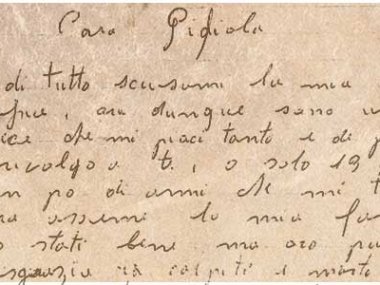 Cara Pidiola
di tutto scusami la mia
, ora dunque sono u
ice che mi piaci tanto e di p
rivolgo a t. , o solo 19
n po di anni che mi t
ra assieme la mia fa
o stati bene ma ora pu
sgrazia ci colpiti e morto